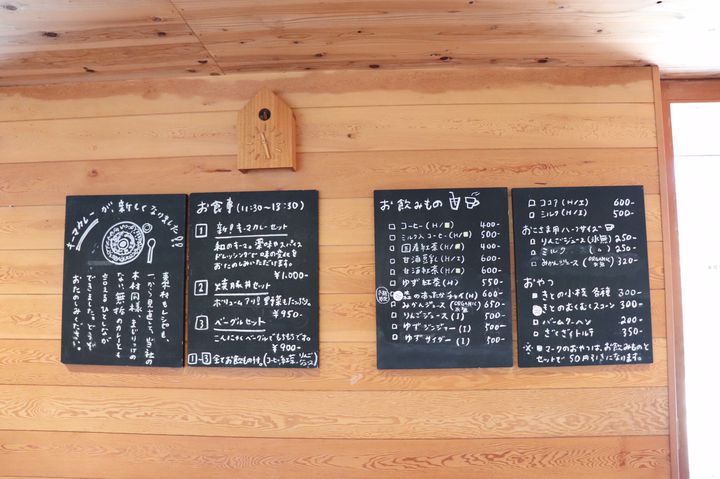 キーマカレーが、新しくなりました!!
素材もレシピも、
一から見直して、当社の
木材同様、まじりっけの
ない、無垢のカレーとも
言えるひとしなが
できました。どうぞ
おたのしみください。
お食事(11:30〜13:30)
1 新!キーマカレーセット
和のキーマの薬味やスパイス
ドレッシングで味の変化を
おたのしみいただけます。
¥1,000-
2 セット
ボリュームアリ!
¥950-
3 ベーグルセット
こんにゃくベーグルでもちもちです。
¥900-
1-3 全てお飲もの付。(コーヒー、紅茶、りんごジュース)
お飲みもの
コーヒー(H/I) 400-
ミルク入コーヒー(H/I) 500-
国産紅茶(H/I) 450-
甘酒豆乳(H/I) 600-
甘酒紅茶(H/I) 600-
ゆず紅茶(H) 550-
のまったかチャイ(H) 600-
みかんジュース(ORGANIC)(I) 650-
りんごジュース(I) 500-
ゆずジンジャー(I) 500-
ゆずサイダー(I) 500-
ココア(H/I) 600-
ミルク(H/I) 500-
おこさま用ハーフサイズ
りんごジュース(氷無) 250-
ミルク(〃) 250-
みかんジュース(ORGANIC 氷無) 320
おやつ
きとの小枝 各種 300-
きとのむくむくスコーン 300-
バームクーヘン 200-
ぎざぎざトルテ 350-
※マークのおやつは、お飲みものと
セットで50円引きになります。